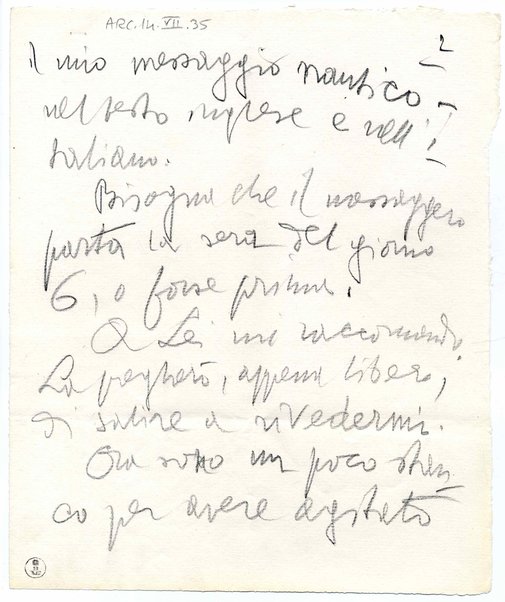 ARC.14.VII.35
2
il mio messaggio nautico -
nel testo inglese e nell' I-
taliano.
Bisogna che il messaggero
parta la sera del giorno
6, o forse prima.
A Lei mi raccomando
La pregherò, appena libero,
di salire a rivedermi.
Ora sono un poco stan-
co per avere agitato